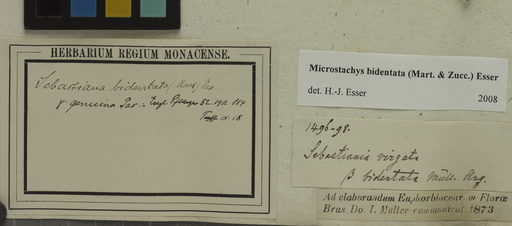 HERBARIUM REGIUM MONACENSE.
Sebastiana bidentata
γ. genuina Pax
Microstachys bidentata (Mart. & Zucc.) Esser
det. H.-J. Esser 2008
1496-98.
Sebastiania virgata
β bidentata Müll. Arg.
Ad elaborandum Euphorbiacear. in Floræ
Bras. Do. J. Müller communicat. 1873